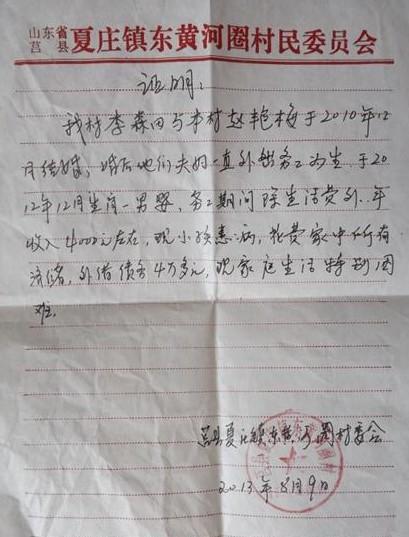 山东省
莒县
夏庄镇东黄河圈村民委员会
证明:
我村李森田与本村赵艳梅于2010年12
月结婚,婚后他们夫妇一直外出务工为生,于20
12年12月生育一男婴,务工期间除生活费外,年
收入4000元左右,现小孩患病,花费家中所有
济储,外借债务4万多元,现家庭生活特别困
难。
莒县夏庄镇东黄河圈村委会
2013年8月9日